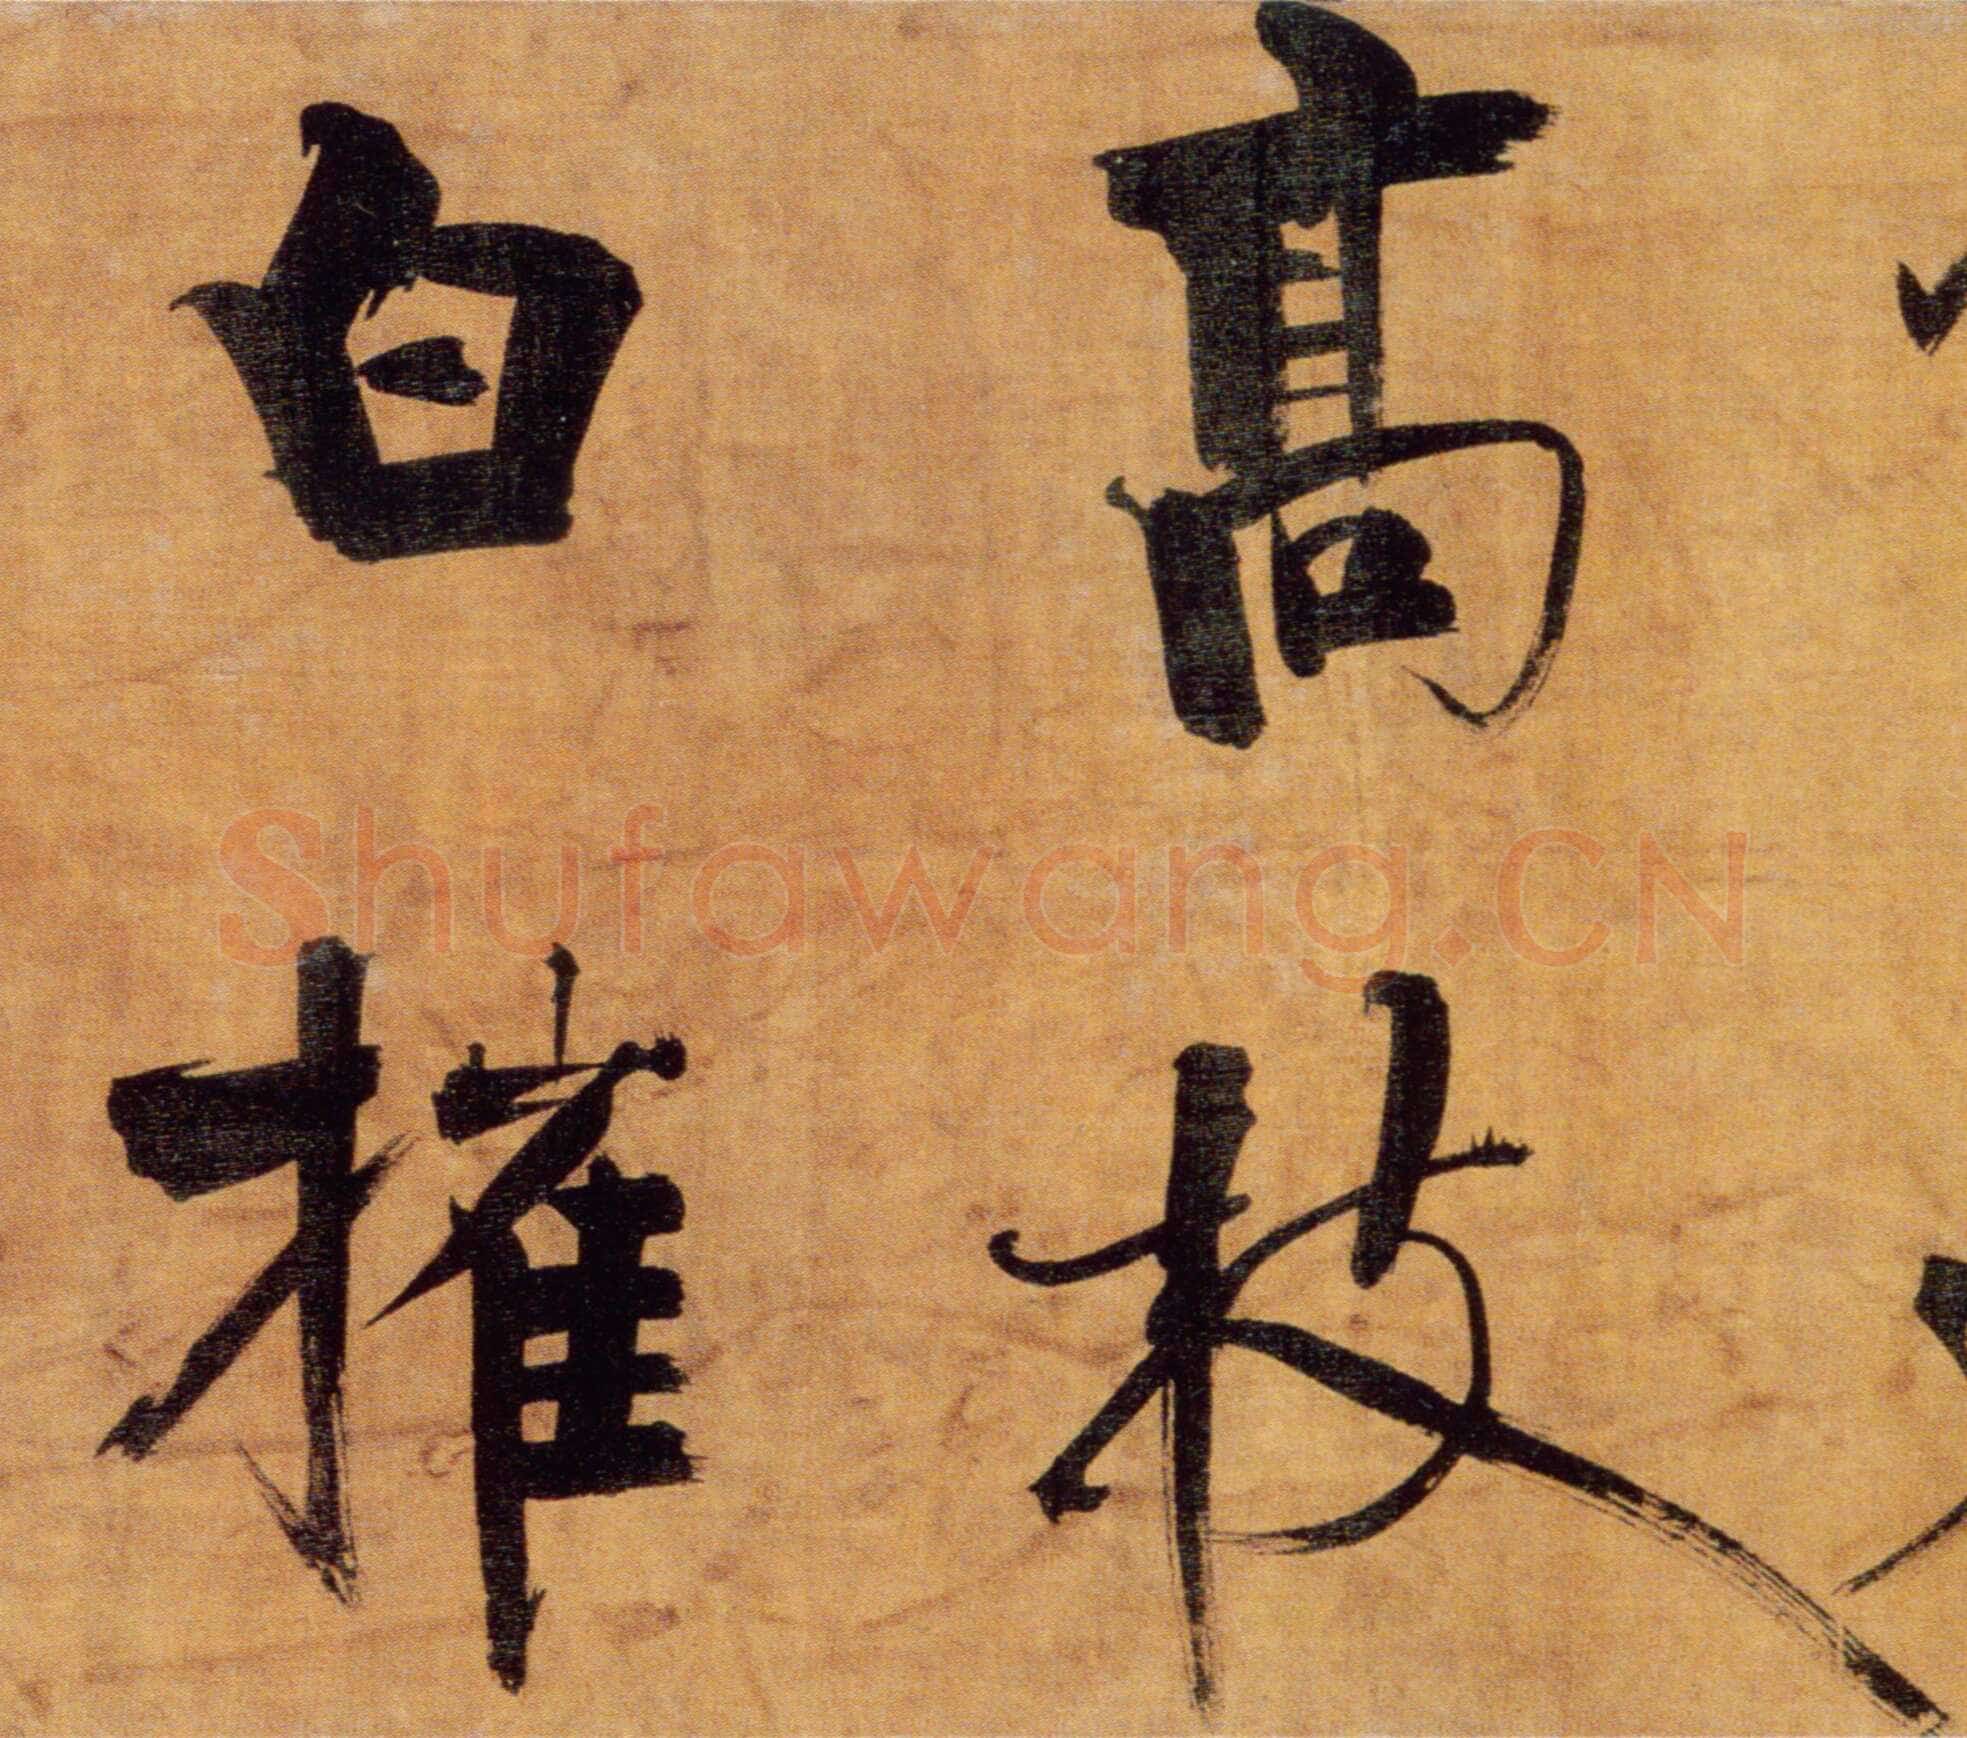 高枝
白摧
Shufawang.CN